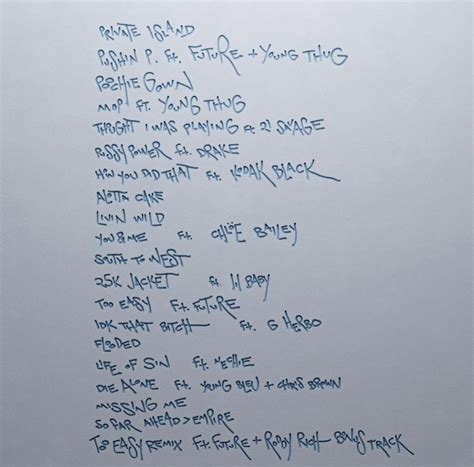 PRIVATE ISLAND
PUSHIN P. Ft. FUTURE + YOUNG THUG
POOCHIE GOWN
MOP Ft. YOUNG THUG
THOUGHT I WAS PLAYING Ft. 21 SAVAGE
PUSSY POWER Ft. DRAKE
HOW YOU DID THAT Ft. KODAK BLACK
ALOTTA CAKE
LIVIN WILD
YOU & ME Ft. CHLÖE BAILEY
SOUTH TO WEST
25K JACKET Ft. lil BABY
TOO EASY Ft. FUTURE
IDK THAT BITCH Ft. G HERBO
FLOODED
LIFE OF SIN Ft. NECHIE
DIE ALONE Ft. YOUNG BLEU + CHRIS BROWN
MISSING ME
SO FAR AHEAD > EMPIRE
TO EASY REMIX Ft. FUTURE + RODDY RICH BONUS TRACK